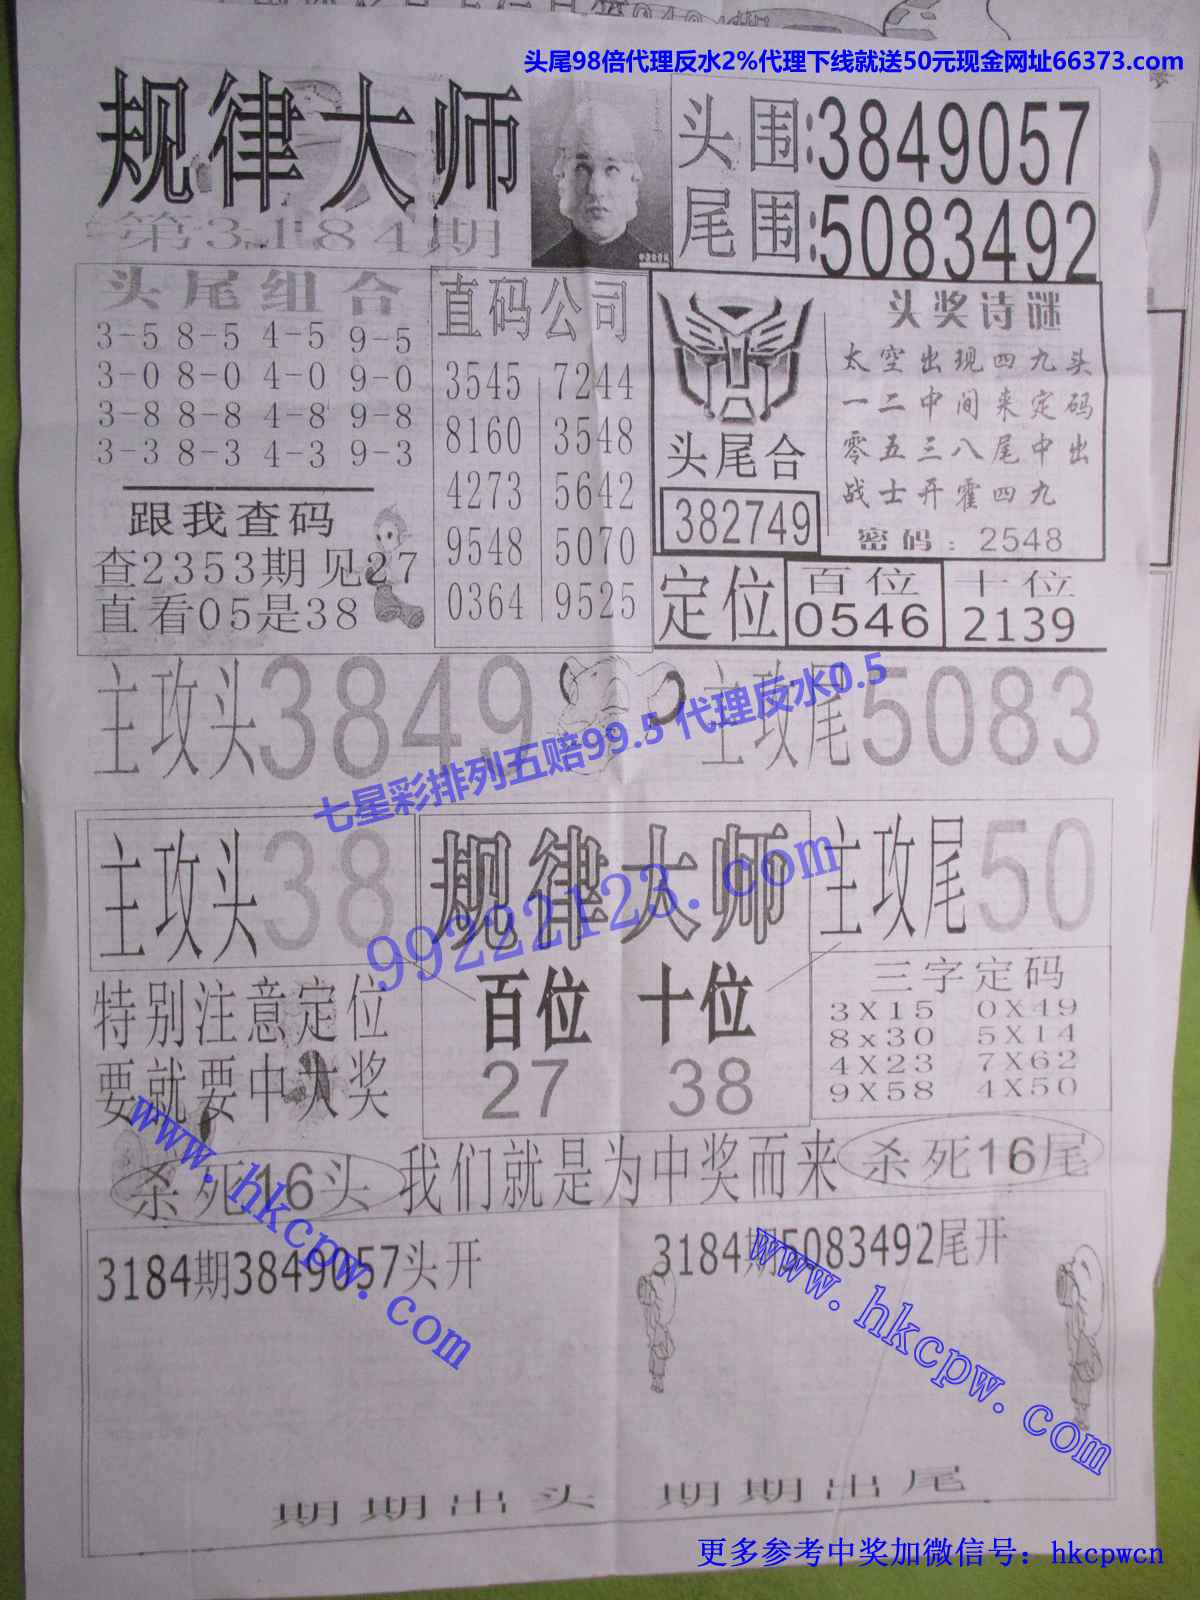 头尾98倍代理反水2%代理下线就送50元现金网址66373.com
规律大师
第3184期
头围:3849057
尾围:5083492
头尾组合
3-5 8-5 4-5 9-5
3-0 8-0 4-0 9-0
3-8 8-8 4-8 9-8
3-3 8-3 4-3 9-3
跟我查码
查2353期见27
直看05是38
直码公司
3545 7244
8160 3548
4273 5642
9548 5070
0364 9525
头尾合
382749
头奖诗谜
太空出现四九头
一二中间来定码
零五三八尾中出
战士开霍四九
密码:2548
定位
百位
0546
十位
2139
主攻头3849
主攻尾5083
七星彩排列五赔99.5 代理反水0.5
主攻头38
规律大师
主攻尾50
99222123.com
特别注意定位
要就要中大奖
百位 十位
27 38
三字定码
3X15 0X49
8x30 5X14
4X23 7X62
9X58 4X50
杀死16头
我们就是为中奖而来
杀死16尾
www.hkcpw.com
www.hkcpw.com
3184期3849057头开
3184期5083492尾开
期期出头 期期出尾
更多参考中奖加微信号：hkcpwcn